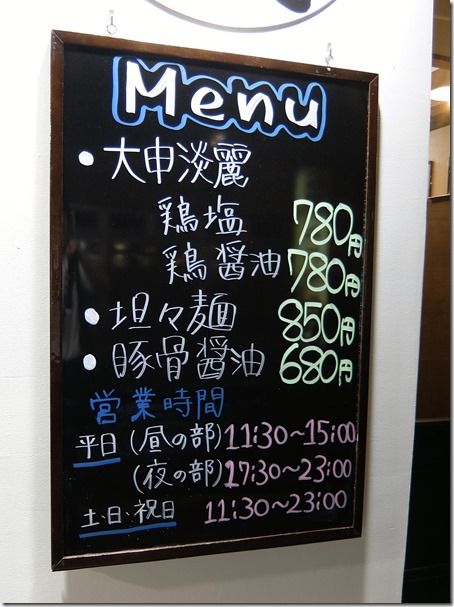 Menu
・大申淡麗
鶏塩 780円
鶏醤油 780円
・坦々麺 850円
・豚骨醤油 680円
営業時間
平日(昼の部)11:30～15:00
(夜の部)17:30～23:00
土・日・祝日 11:30～23:00